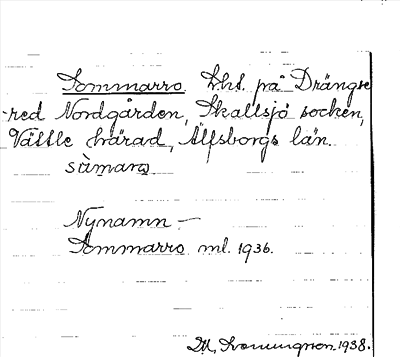 Sommarro. Lht. på Drängse
-red Nordgården, Skallsjö socken,
Vättle härad, Älfsborgs län.
sùmarω
Nynamn –
Sommarro ml. 1936.
1938.